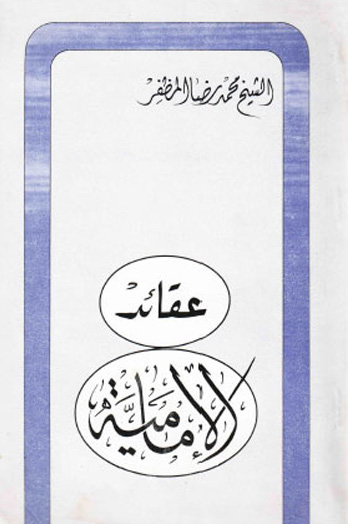 الشيخ محمد رضا المظفر
عقائد
الإمامية